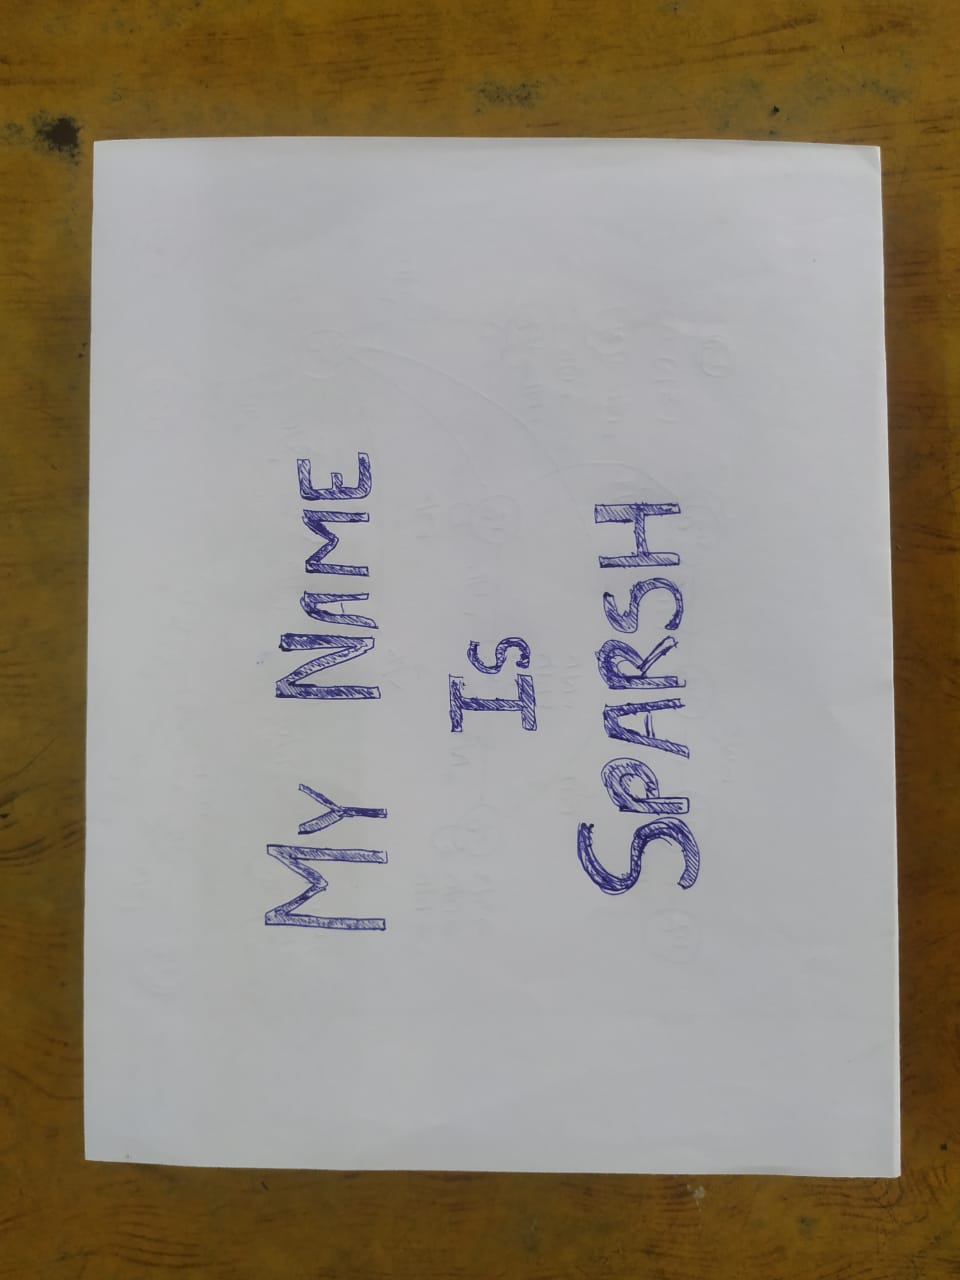 My Name
Is
Sparsh